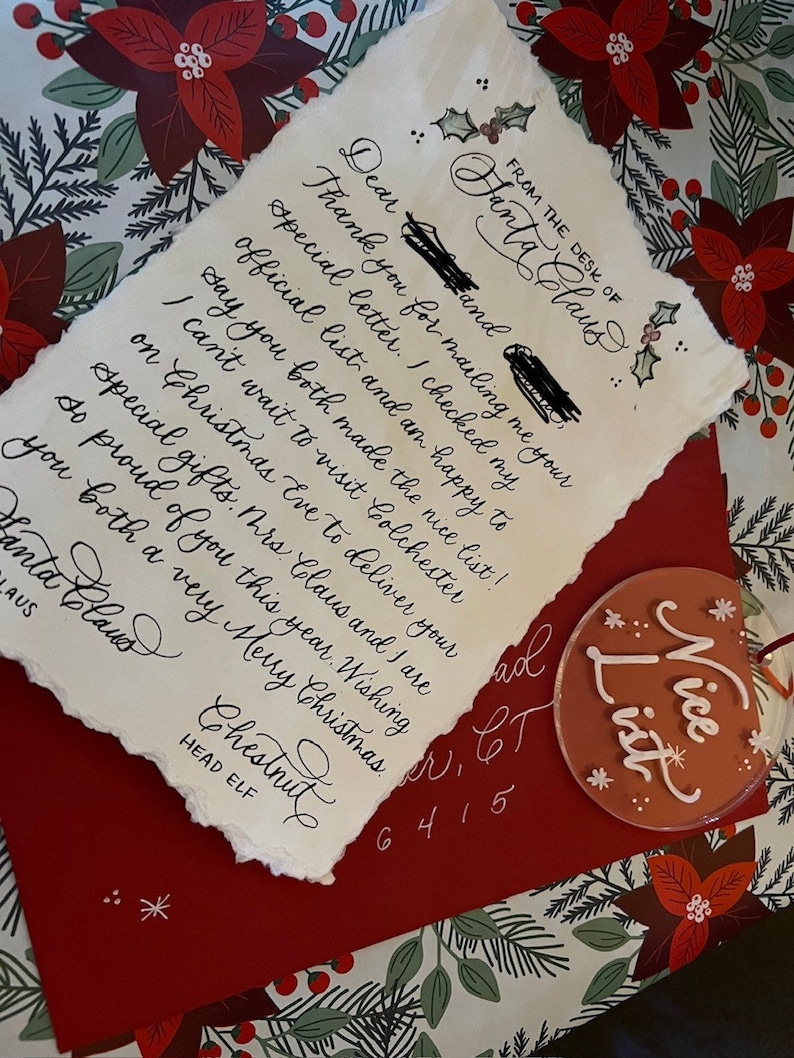 FROM THE DESK OF
Santa Claus
Dear and
Thank you for mailing me your
special letter. I checked my
official list and am happy to
say you both made the nice list!
I can't wait to visit Colchester
on Christmas Eve to deliver your
special gifts. Mrs. Claus and I are
so proud of you this year. Wishing
you both a very Merry Christmas.
Santa Claus
Chestnut
HEAD ELF
CT
6415
Nice
List